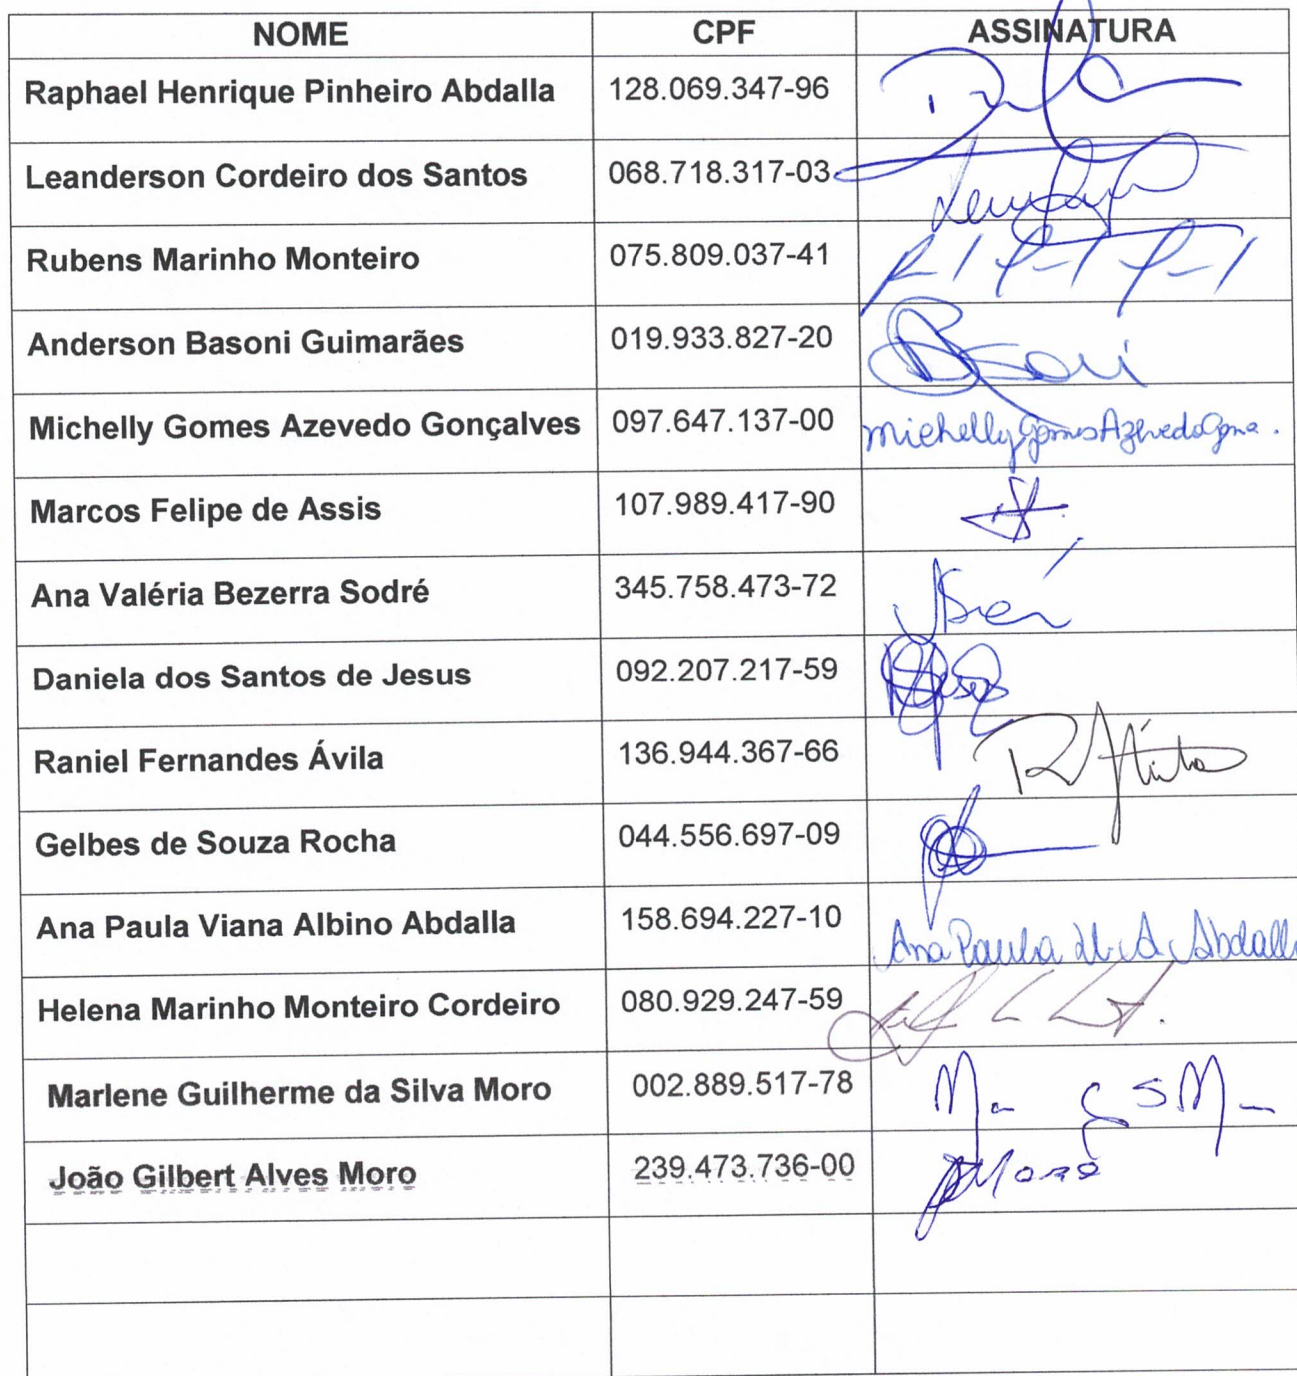 NOME CPF ASSINATURA
Raphael Henrique Pinheiro Abdalla 128.069.347-96
Leanderson Cordeiro dos Santos 068.718.317-03
Rubens Marinho Monteiro 075.809.037-41
Anderson Basoni Guimarães 019.933.827-20
Michelly Gomes Azevedo Gonçalves 097.647.137-00 Michelly Gomes Azevedo
Marcos Felipe de Assis 107.989.417-90
Ana Valéria Bezerra Sodré 345.758.473-72
Daniela dos Santos de Jesus 092.207.217-59
Raniel Fernandes Ávila 136.944.367-66
Gelbes de Souza Rocha 044.556.697-09
Ana Paula Viana Albino Abdalla 158.694.227-10 Ana Paula V. A. Abdalla
Helena Marinho Monteiro Cordeiro 080.929.247-59
Marlene Guilherme da Silva Moro 002.889.517-78
João Gilbert Alves Moro 239.473.736-00